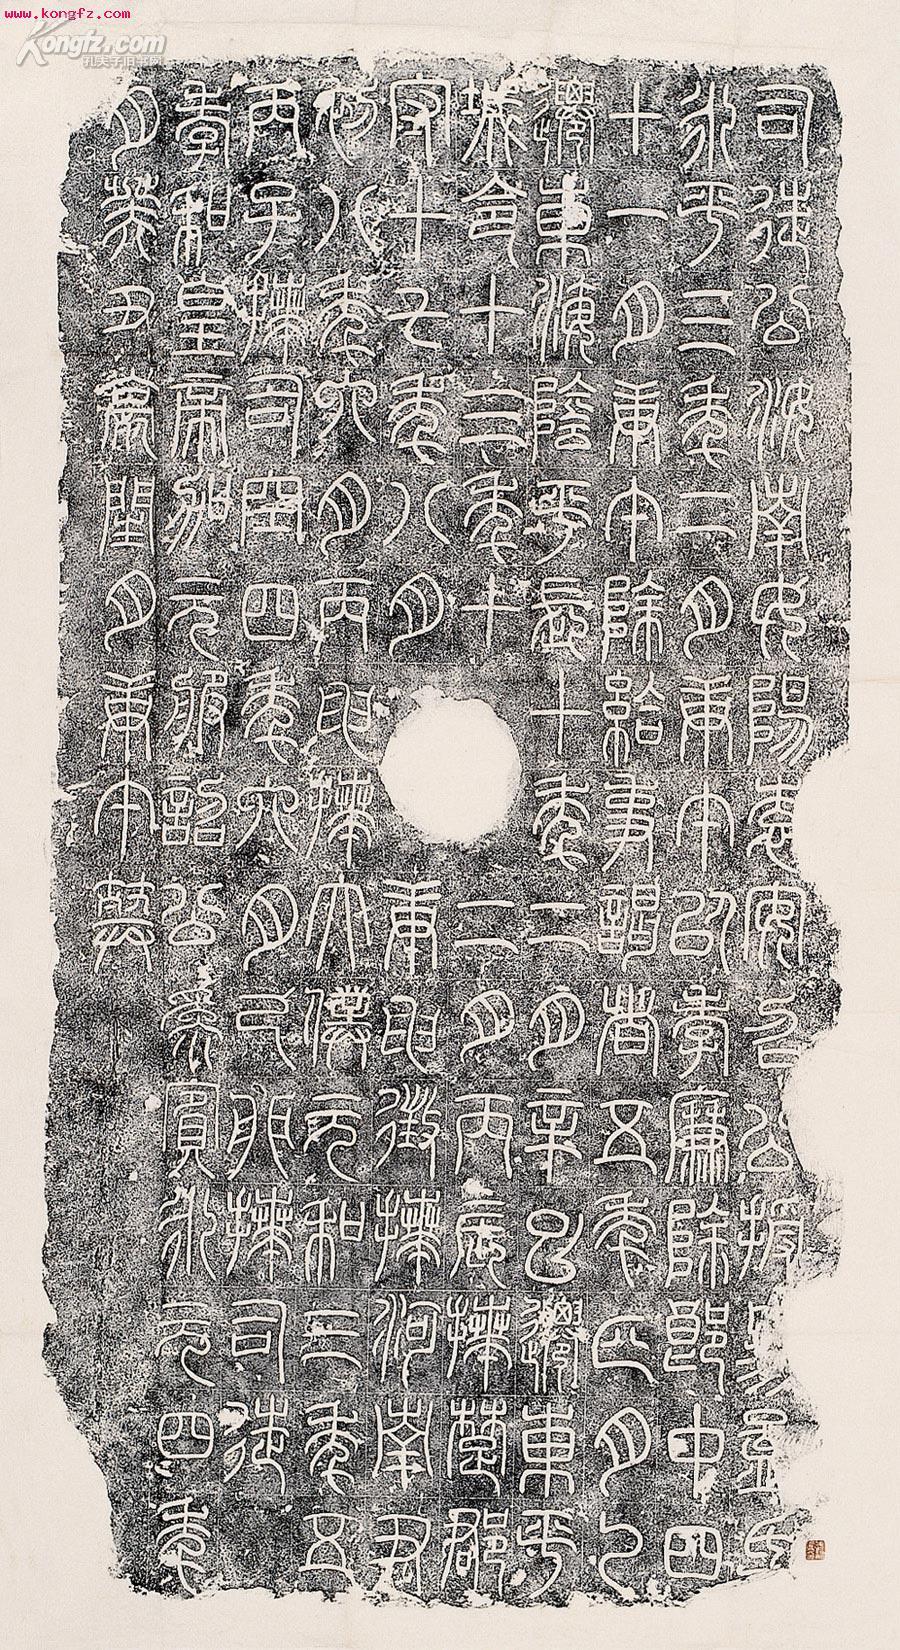 www.kongfz.com
Kongfz.com
孔夫子旧书网
司徒公汝南女陽袁安召公授易孟氏
永平三年二月庚午以孝廉除郎中四
十一月庚午除給事謁者五年正月乙
遷東海陰平長十年二月辛巳遷東平
城令十三年十二月丙辰拜楚郡
守十七年八月庚申徵拜河南尹
初八年六月丙申拜太僕元和三年五
丙子拜司空四年六月己卯拜司徒
孝和皇帝加元服詔公為賓永元四年
月癸丑薨閏月庚午葬